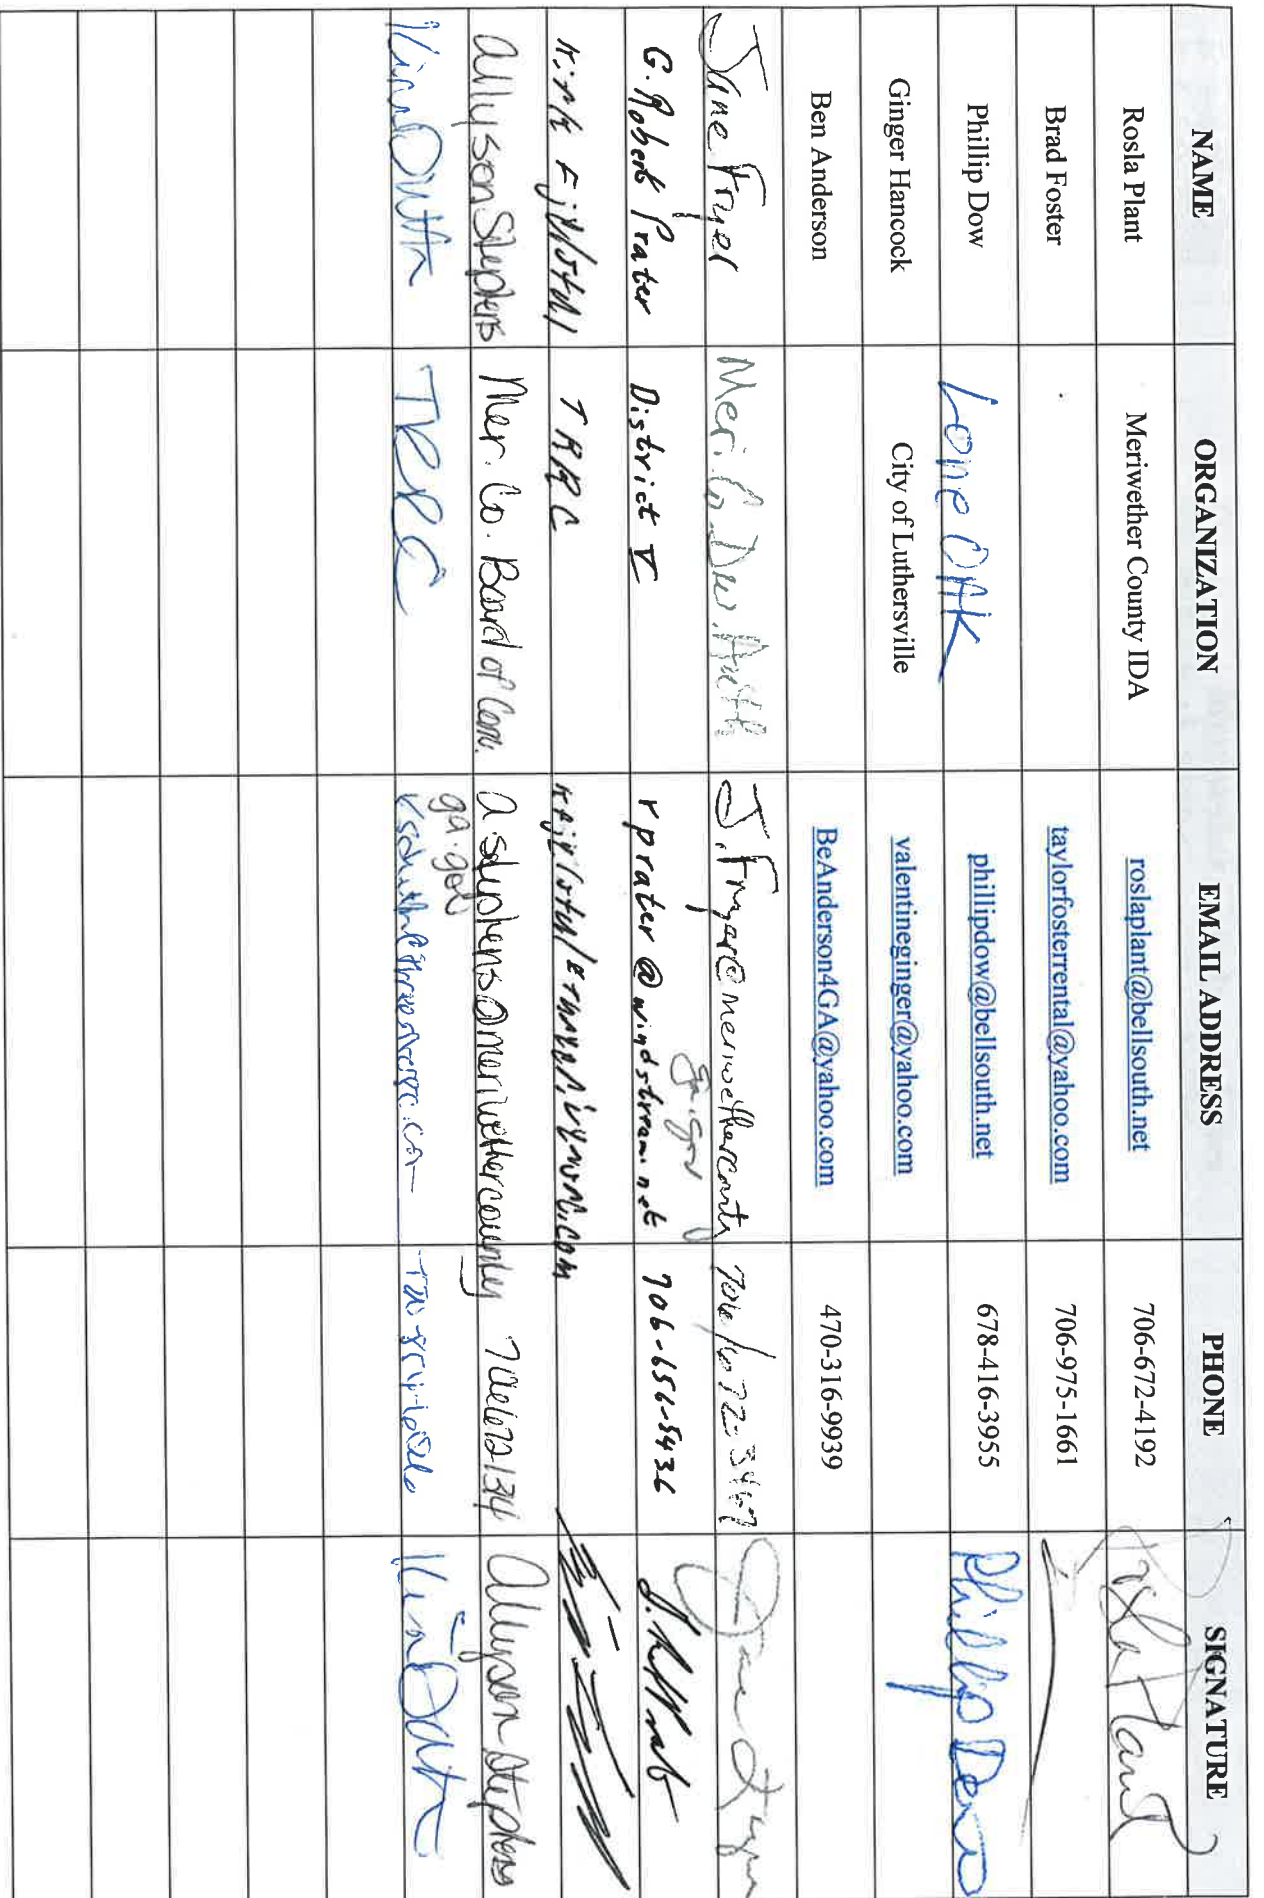 NAME ORGANIZATION EMAIL ADDRESS PHONE SIGNATURE
Rosla Plant Meriwether County IDA roslaplant@bellsouth.net 706-672-4192 Rosla Plant
Brad Foster taylorfosterrental@yahoo.com 706-975-1661
Phillip Dow Lone Oak phillipdow@bellsouth.net 678-416-3955 Phillip Dow
Ginger Hancock City of Luthersville valentineginger@yahoo.com
Ben Anderson BeAnderson4GA@yahoo.com 470-316-9939
Jane Fryer Meri. Co. Dev. Auth J.Fryer@meriwethercounty 706/672-3467 Jane Fryer
ga.gov
G. Robert Prater District V rprater@windstream.net 706-656-5436
Kirk TRRC
Allyson Stephens Mer. Co. Board of Com. a.stephens@meriwethercounty 7066721314 Allyson Stephens
ga.gov
Kim Dutton TRRC